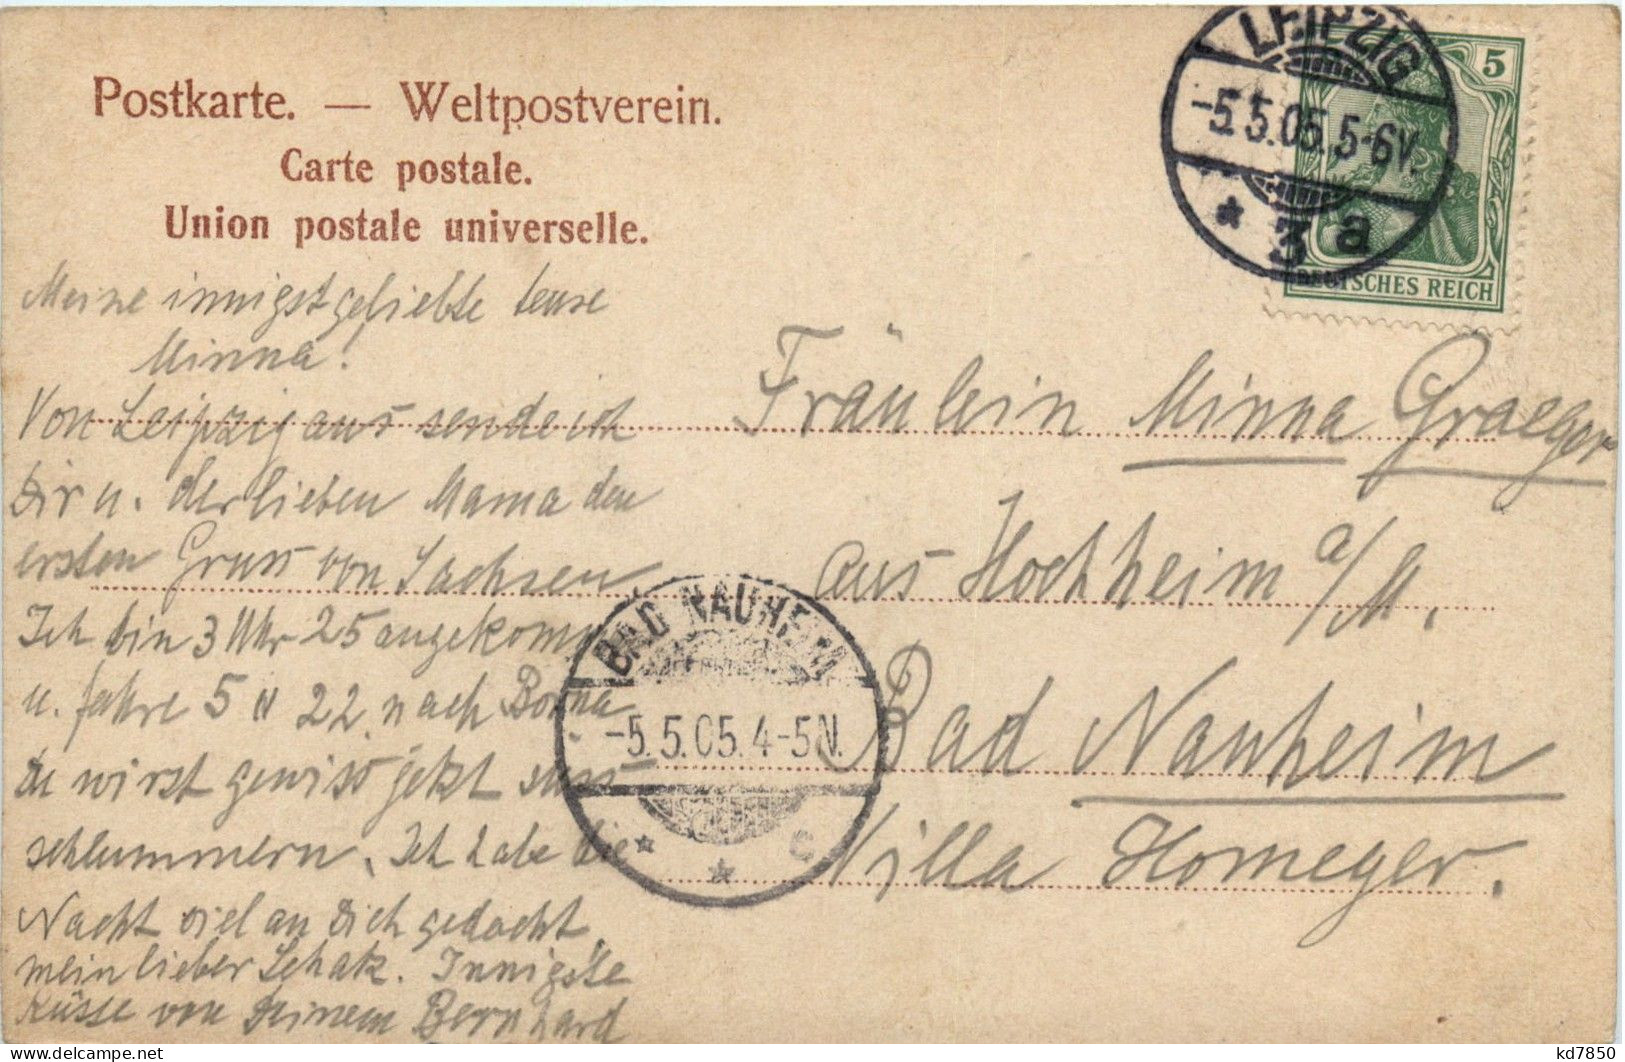 Postkarte. — Weltpostverein.
Carte postale.
Union postale universelle.
LEIPZIG
-5.5.05.5-6V.
* 3 a
5
DEUTSCHES REICH
Meine innigstgeliebte teure
Minna!
Von Leipzig aus sende ich
Dir u. der lieben Mama den
ersten Gruss von Sachsen.
Ich bin 3 Uhr 25 angekomm
u. fahre 5 " 22 nach Borna
Du wirst gewiss jetzt süss
schlummern. Ich habe die
Nacht viel an Dich gedacht
mein lieber Schatz. Innigste
Küsse von Deinem Bernhard
Fräulein Minna Graeger
aus Hochheim a/M.
Bad Nauheim
Villa Homeyer.
BAD NAUHEIM
-5.5.05.4-5N.
* * c
delcampe.net
kd7850